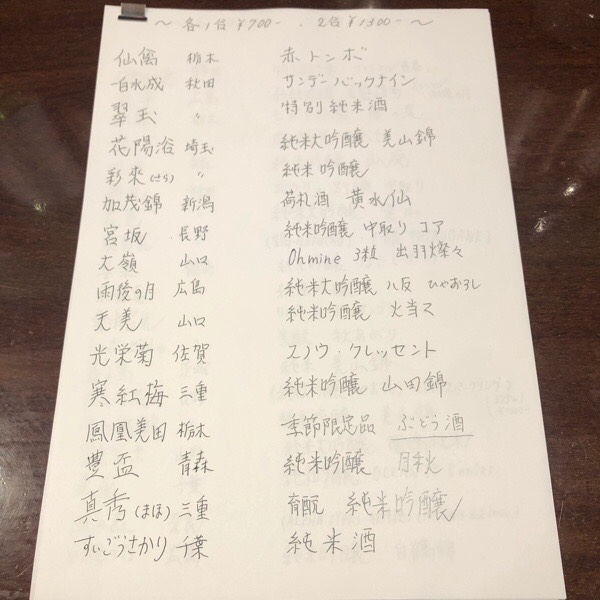 ～ 各1合 ￥700- . 2合 ￥1300- ～
仙禽 栃木 赤トンボ
一白水成 秋田 サンデーバックナイン
翠玉 〃 特別純米酒
花陽浴 埼玉 純米大吟醸 美山錦
彩來(さら) 〃 純米吟醸
加茂錦 新潟 荷札酒 黄水仙
宮坂 長野 純米吟醸 中取り コア
大嶺 山口 Ohmine 3粒 出羽燦々
雨後の月 広島 純米大吟醸 八反 ひやおろし
天美 山口 純米吟醸 火当て
光栄菊 佐賀 スノウ・クレッセント
寒紅梅 三重 純米吟醸 山田錦
鳳凰美田 栃木 季節限定品 ぶどう酒
豊盃 青森 純米吟醸 月秋
真秀(まほ) 三重 育酛 純米吟醸
すいごうさかり 千葉 純米酒